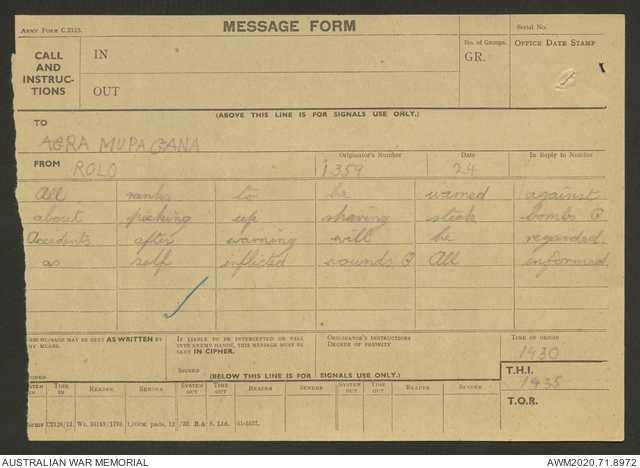 ARMY FORM C.2128.
MESSAGE FORM
Serial No.
CALL AND INSTRUC- TIONS
IN
No. of Groups.
GR.
OFFICE DATE STAMP
OUT
(ABOVE THIS LINE IS FOR SIGNALS USE ONLY.)
TO
AGRA MUPA GANA
FROM ROLO
Originator's Number 1359
Date 24
In Reply to Number
All ranks to be warned against
about picking up shaving stick bombs @
Accidents after warning will be regarded
as self inflicted wounds @ All informed.
THIS MESSAGE MAY BE SENT AS WRITTEN BY
ANY MEANS.
IF LIABLE TO BE INTERCEPTED OR FALL
INTO ENEMY HANDS, THIS MESSAGE MUST BE
SENT IN CIPHER.
ORIGINATOR'S INSTRUCTIONS
DEGREE OF PRIORITY
TIME OF ORIGIN
1430
SIGNED
SIGNED
(BELOW THIS LINE IS FOR SIGNALS USE ONLY.)
T.H.I.
1435
SYSTEM IN
TIME IN
READER
SENDER
SYSTEM OUT
TIME OUT
READER
SENDER
SYSTEM OUT
TIME OUT
READER
SENDER
T.O.R.
AUSTRALIAN WAR MEMORIAL
AWM2020.71.8972